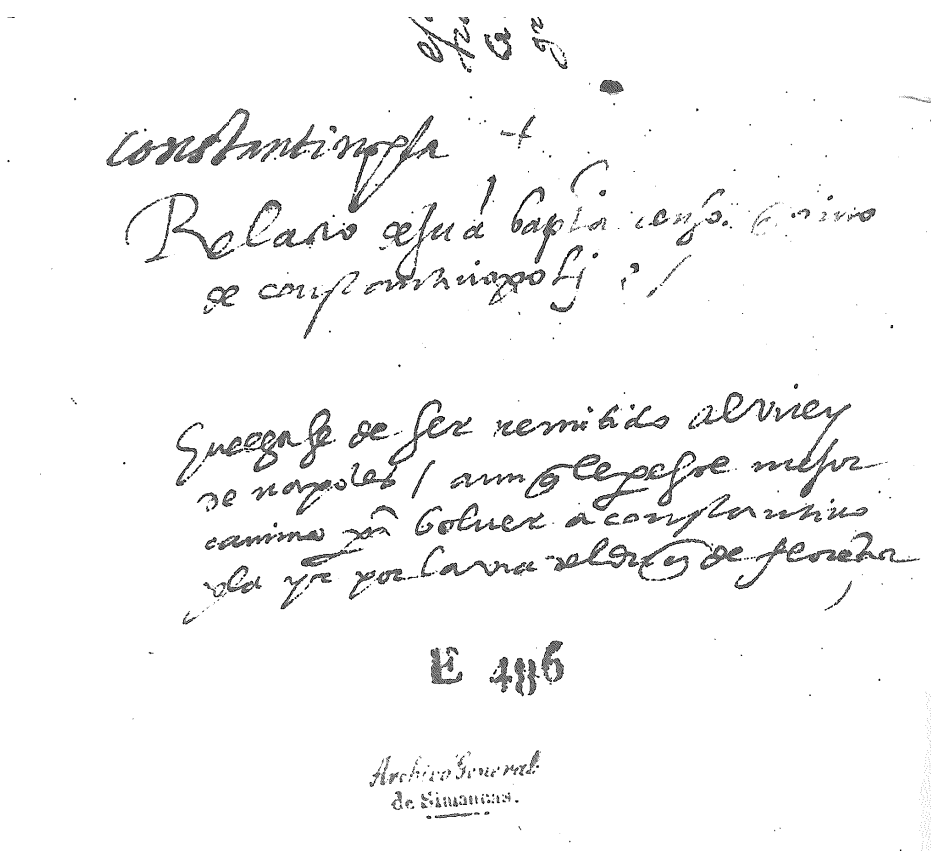 constantinopla +
Relacio de Juā bapta que vino
de constantinopolj
huelgase de ser remitido al virey
de napoles / aunq le pesçe mejor
camino pa bolver a constantino
pla yr por la via del duq de florençia
E 486
Archivo General
de Simancas.